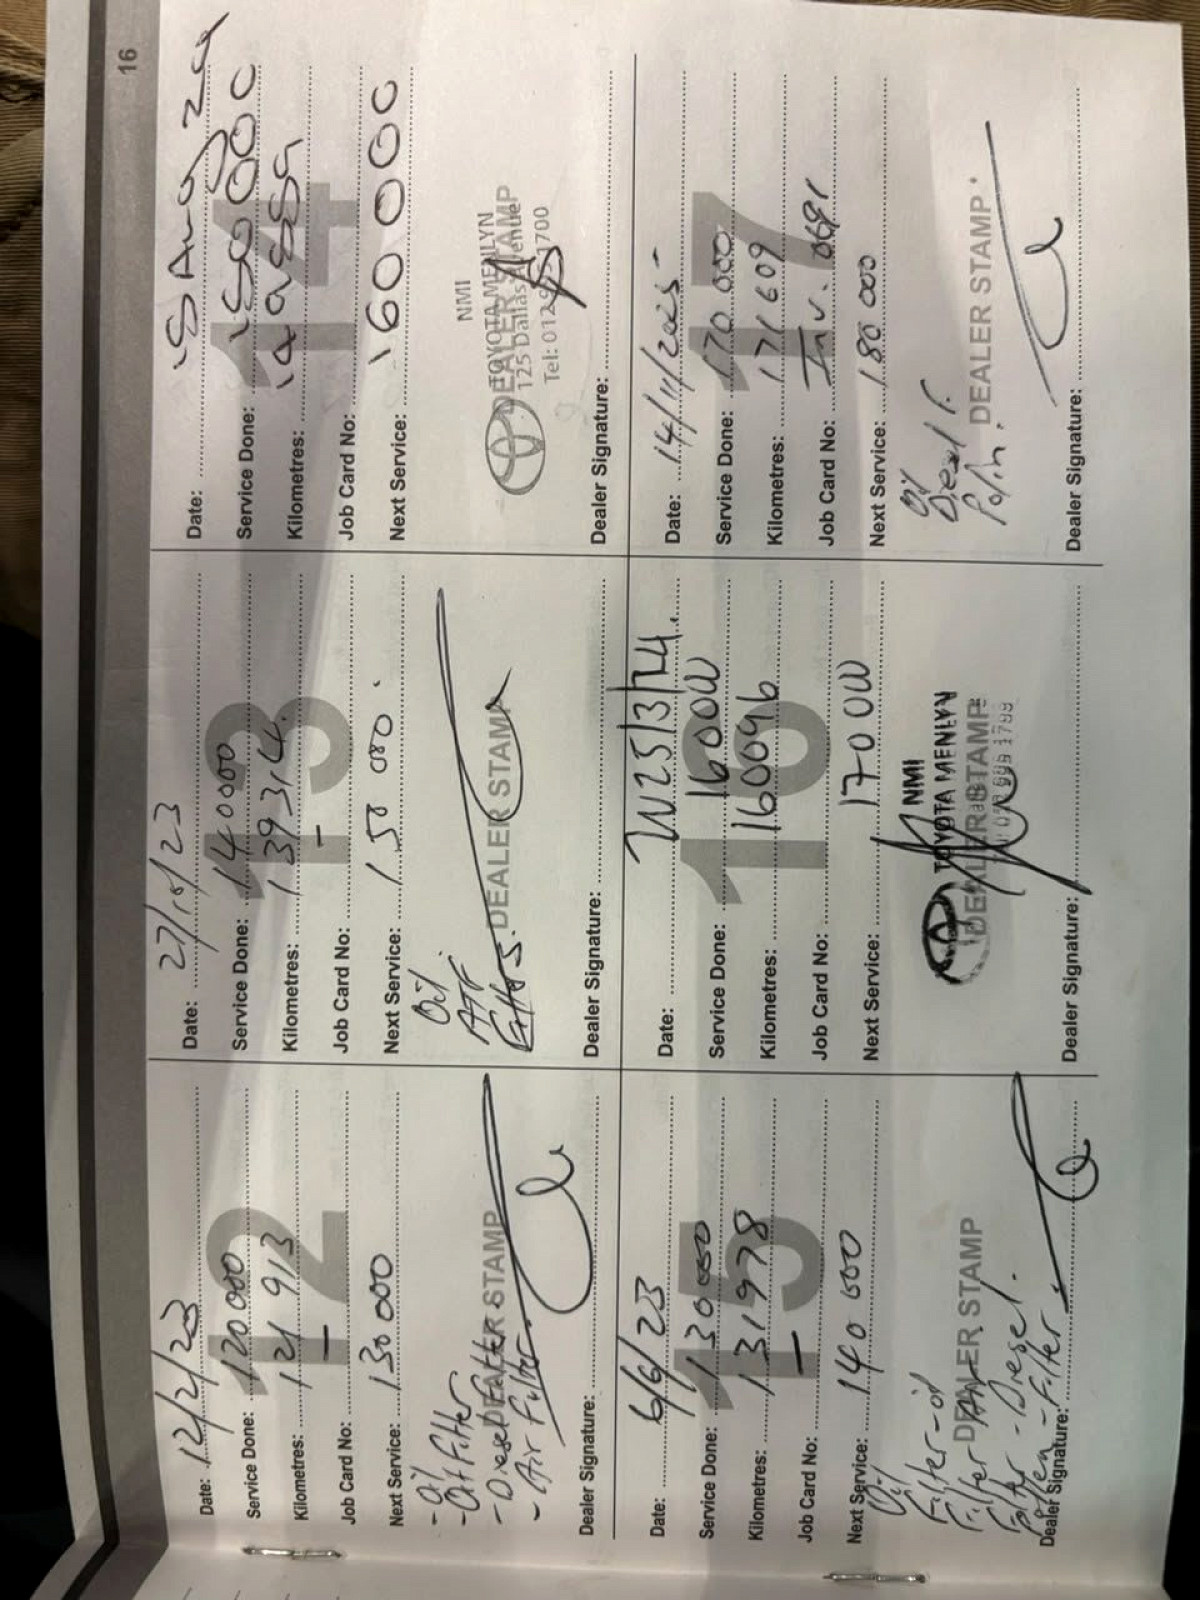 16
12
Date: 12/2/23
Service Done: 120 000
Kilometres: 121 913
Job Card No: –
Next Service: 130 000
- Oil
- Oil Filter
- Diesel Filter
- Air Filter
DEALER STAMP
Dealer Signature:
13
Date: 27/10/23
Service Done: 140 000
Kilometres: 139 314
Job Card No: –
Next Service: 150 000
Oil
ATF
DEALER STAMP
Dealer Signature:
14
Date:
Service Done: 150 000
Kilometres:
Job Card No:
Next Service: 160 000
NMI
TOYOTA MENLYN
125 Dallas Avenue
DEALER STAMP
Dealer Signature:
15
Date: 6/6/23
Service Done: 130 000
Kilometres: 131 978
Job Card No: –
Next Service: 140 000
Oil
Filter - oil
Filter
Filter - Diesel
Pollen - Filter
DEALER STAMP
Dealer Signature:
16
Date:
Service Done: 160 000
Kilometres: 160096
Job Card No:
Next Service: 170 000
NMI
TOYOTA MENLYN
DEALER STAMP
Dealer Signature:
17
Date: 14/11/2025
Service Done: 170 000
Kilometres: 171 609
Job Card No: Inv. 0691
Next Service: 180 000
Oil
Diesel F.
Polln.
DEALER STAMP
Dealer Signature: